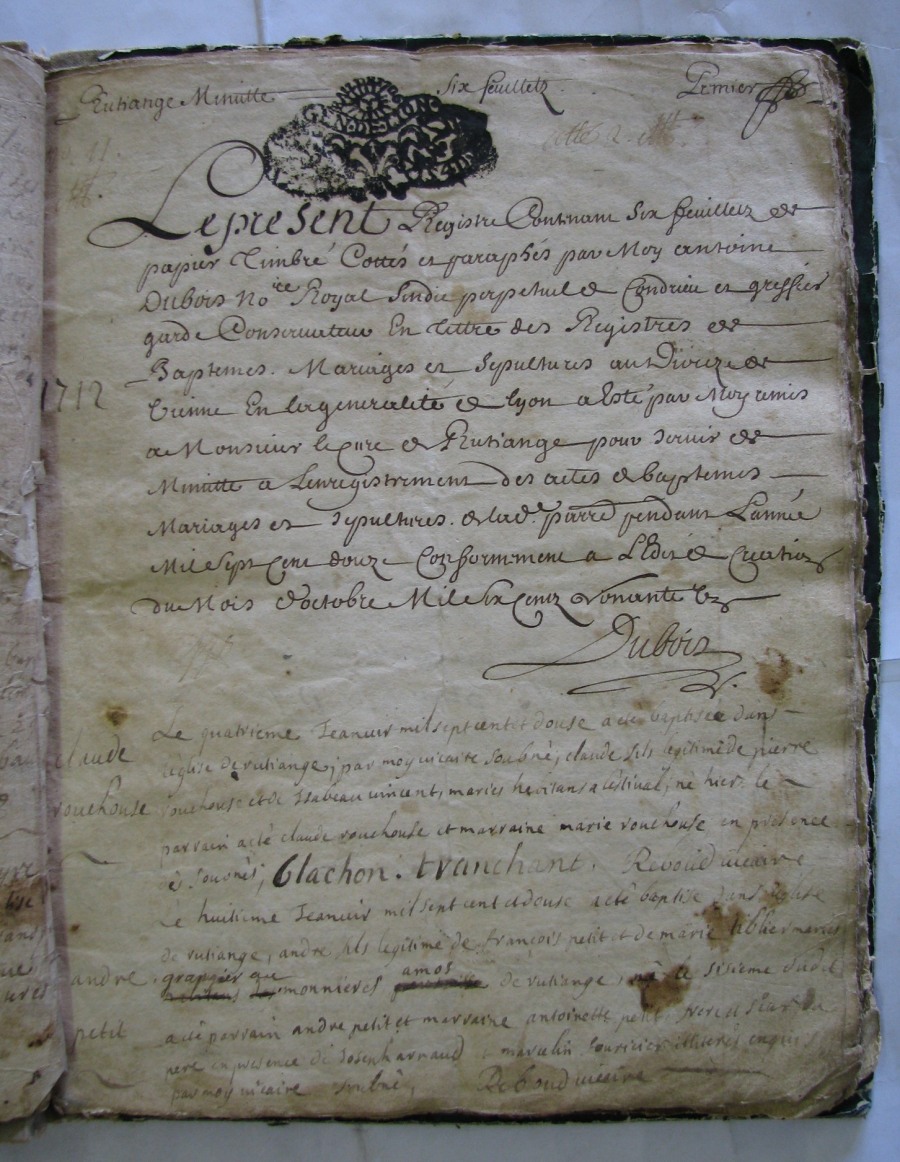 Rutiange Minutte six feuilletz Premier
GEN DE LYON
1712
Le present Registre Contenant six feuilletz de
papier Timbré Cottés et paraphés par Moy antoine
Dubois No.re Royal sindic perpetuel de Condrieu et greffier
garde Conservateur En tittre des Registres de
Baptemes. Mariages et sepultures au Dioceze de
Vienne En la generalité de lyon a Esté par Moy remis
a Monsieur le cure de Rutiange pour servir de
Minutte a Lenregistrement des actes de baptemes
Mariages et sepultures. de lad.e parre pendant Lannée
Mil sept cent douze Conformement a L'Edit de Creation
du Mois d'octobre Mil six centz Nonante Un
Dubois
claude
rouchouse
Le quatrieme Jeanvier mil sept cent et douse a eté baptisée dans
leglise de rutiange, par moy vicaire soubné, claude fils legitime de pierre
rouchouse et de Isabeau vincent, maries hevitans a lestival, né hier. le
parrain a eté claude rouchouse et marraine marie rouchouse en presence
des soubnés, Clachon. tranchant. Reboud vicaire
andre
petit
Le huitieme Jeanvier mil sept cent et douse a eté baptise dans leglise
de rutiange, andre, fils legitime de françois petit et de marie maries
grangier que monnieres amos de rutiange, né le sisieme dudit
a eté parrain andre petit et marraine antoinette petit, frere et sœur du
pere en presence de Joseph arnaud et marcelin souricier illiterés enquis
par moy vicaire soubné, Reboud vicaire